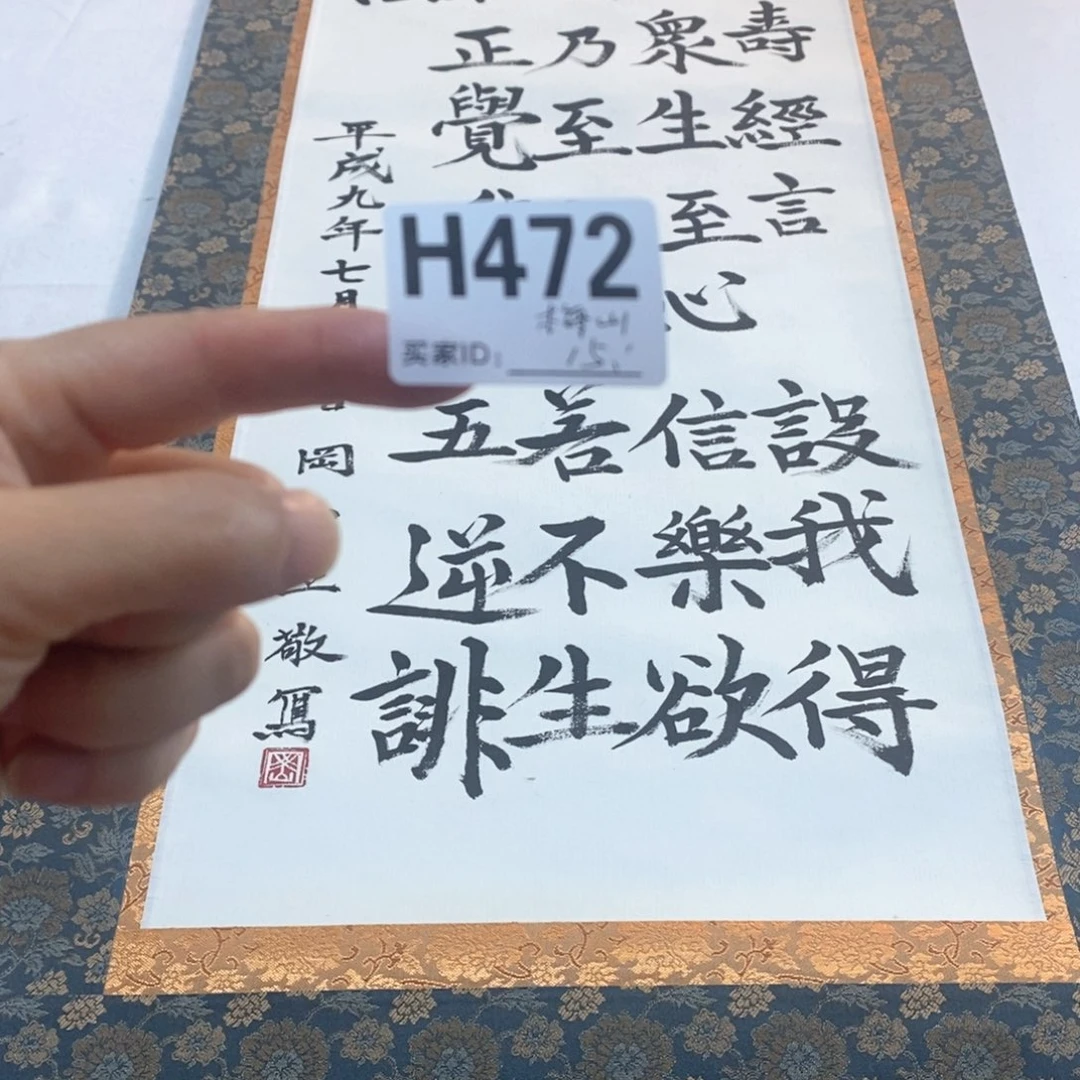 壽經言設我得
衆生至心信樂欲
乃至若不生
正覺五逆誹
平成九年七月岡敬寫
H472
梅山
买家ID: